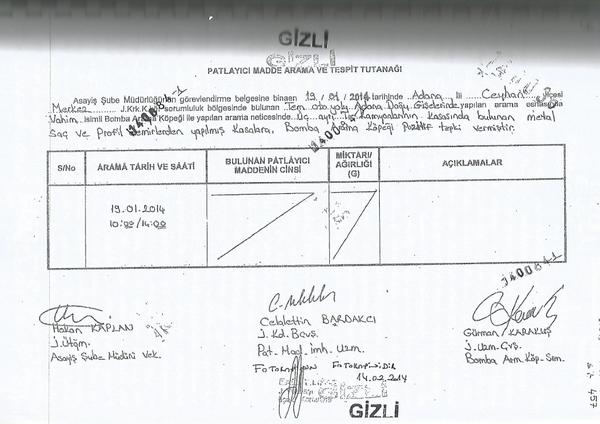 GİZLİ
GİZLİ
PATLAYICI MADDE ARAMA VE TESPİT TUTANAĞI
Asayiş Şube Müdürlüğünün görevlendirme belgesine binaen 19 / 01 / 2014 tarihinde Adana İli Ceyhan ilçesi
Merkez J.Krk.K. sorumluluk bölgesinde bulunan Tem otoyolu Adana Doğu Gişelerinde yapılan arama esnasında
Vahim isimli Bomba Arama Köpeği ile yapılan arama neticesinde. Üç ayrı Tır Kamyonlarının Kasasında bulunan metal
Saç ve Profil demirlerden yapılmış Kasalara, Bomba Arama Köpeği Pozitif tepki vermiştir.
J400641
J400641
S/No ARAMA TARİH VE SAATİ BULUNAN PATLAYICI MADDENİN CİNSİ MİKTARI/ AĞIRLIĞI (G) AÇIKLAMALAR
19.01.2014
10:00/14:00
J400641
Hakan KAPLAN
J.Ütğm.
Asayiş Şube Müdürü Vek.
Celalettin BARDAKCI
J. Kd. Bçvş.
Pat. Mad. İmh. Uzm.
Gürman KARAKUŞ
J. Uzm. Çvş.
Bomba Arm. Köp. Sen.
FOTOKOPİDİR
14.02.2014
457
GİZLİ
GİZLİ